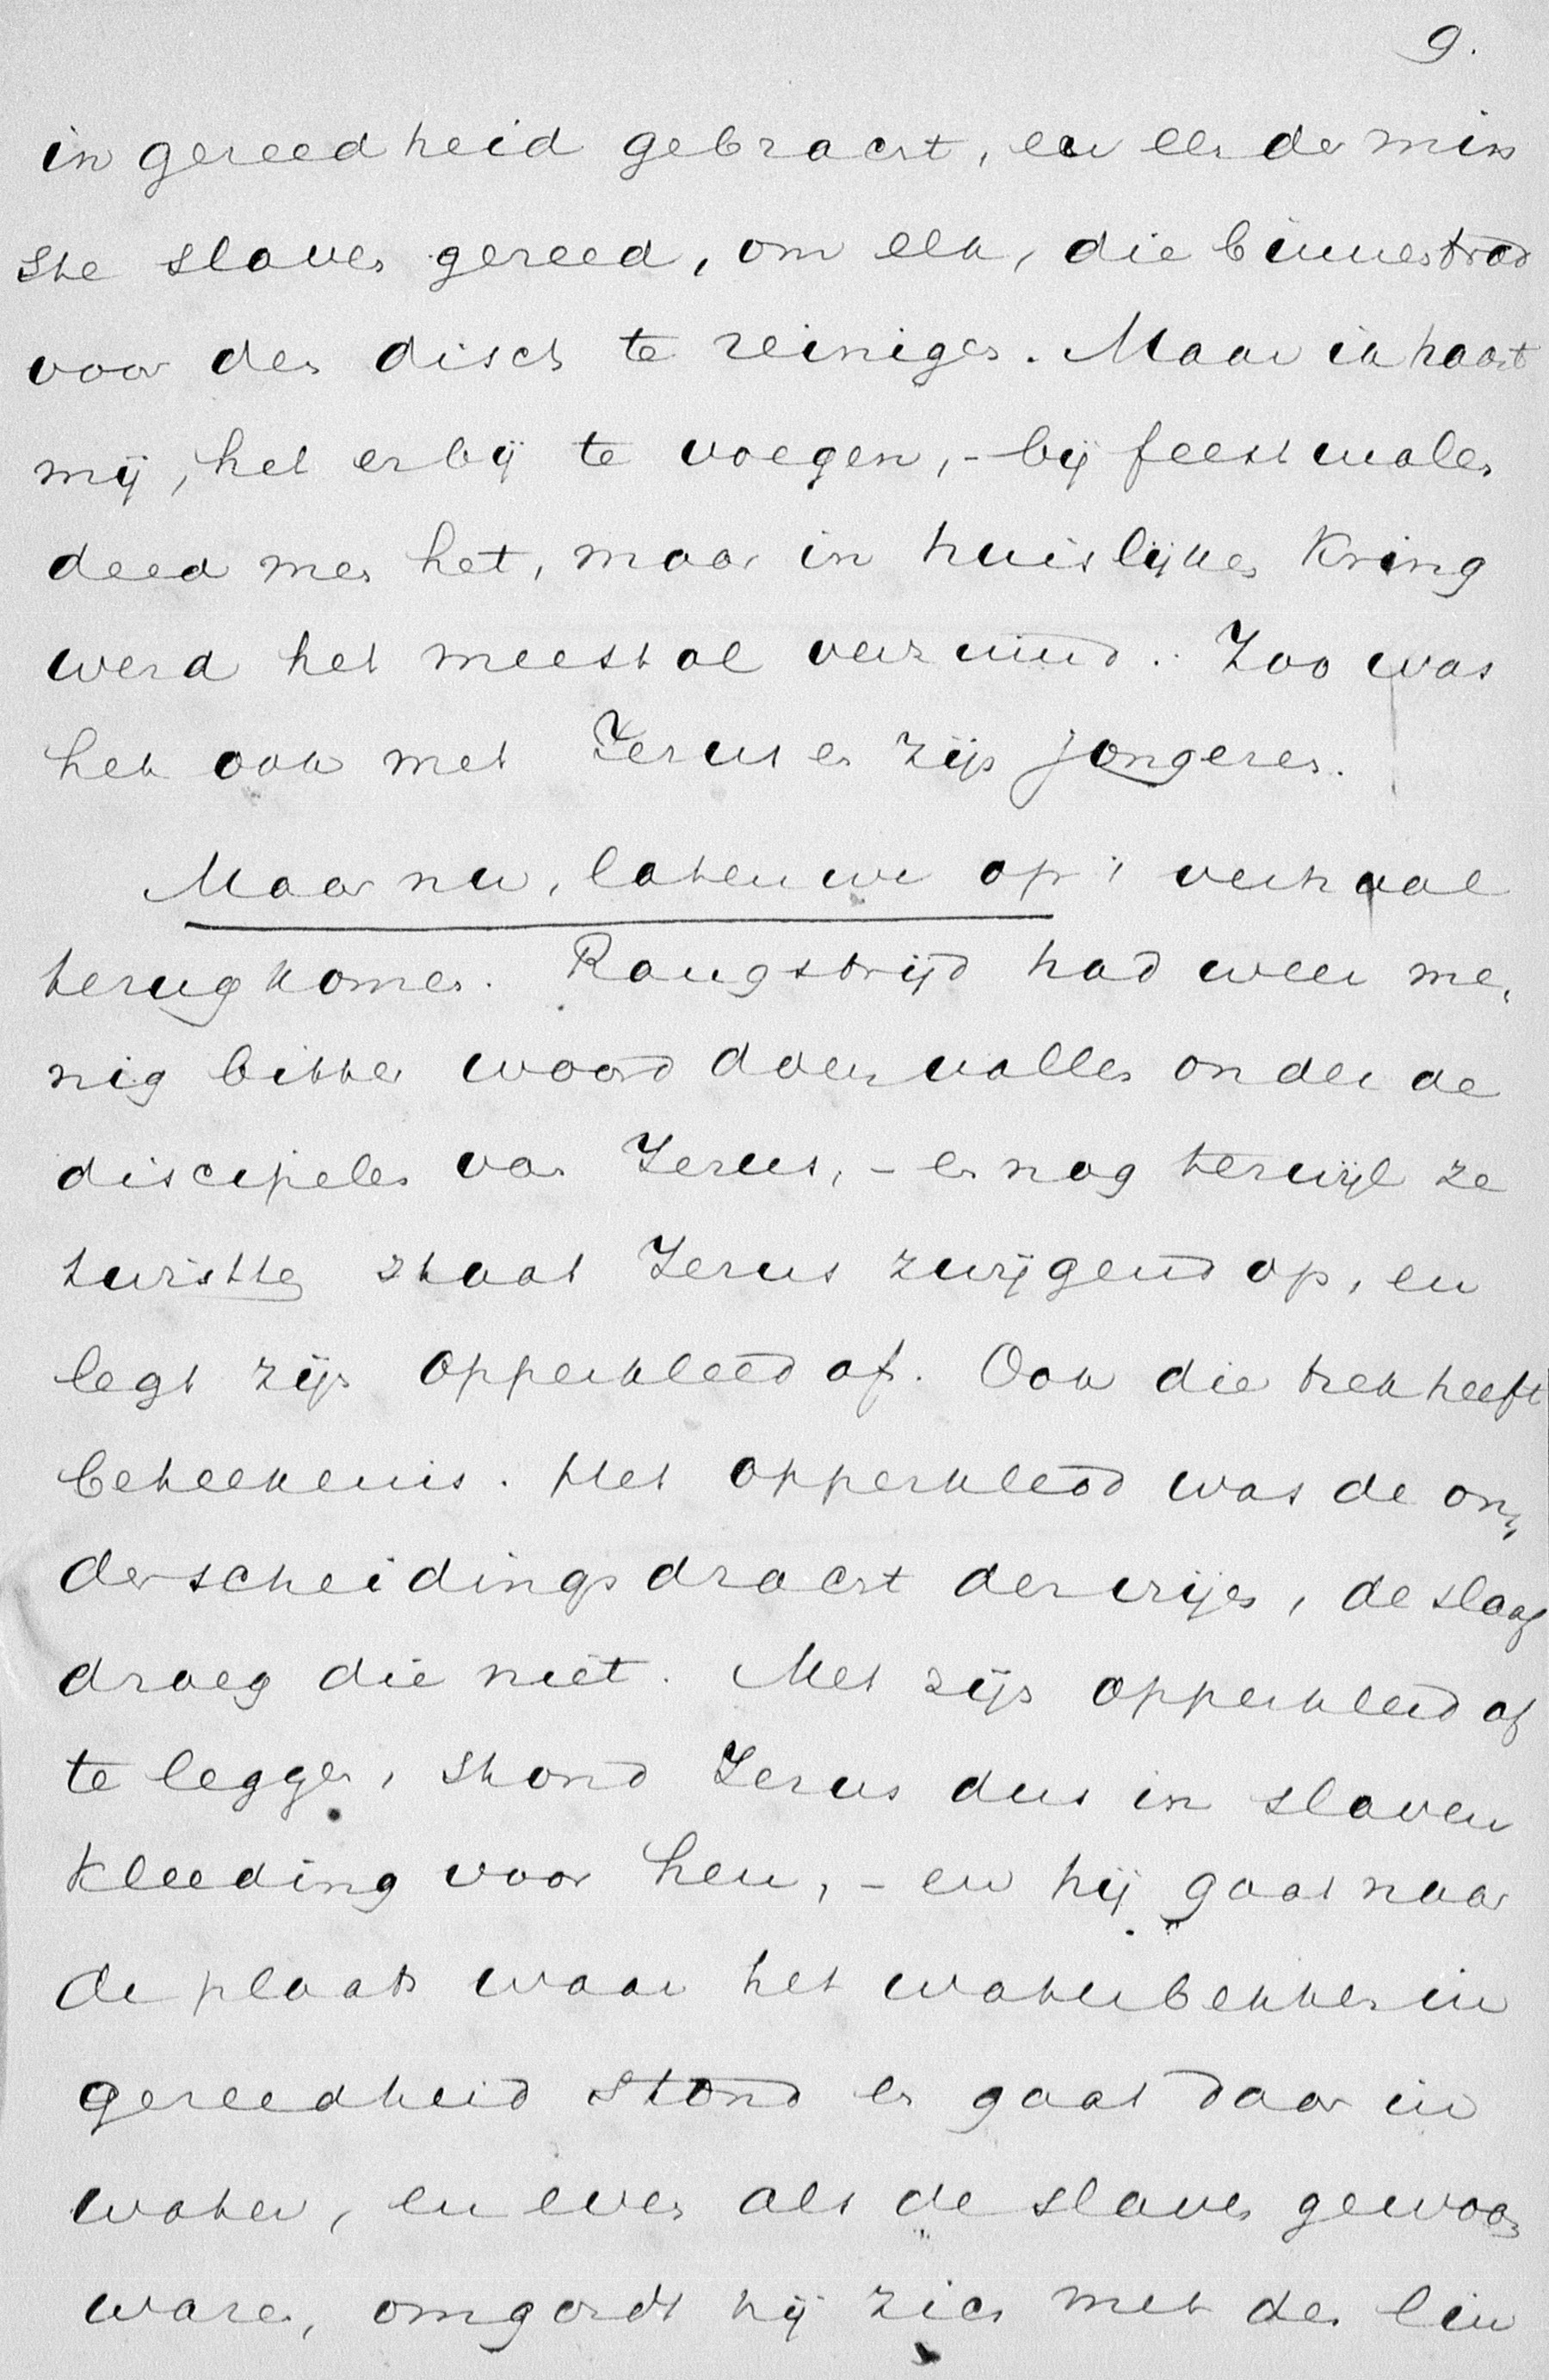 9.
in gereedheid gebracht, en een der min
ste slaven gereed, om elk, die binnentrad
voor den disch te reinigen. Maar ik haast
mij, het erbij te voegen, - bij feestmalen
deed men het, maar in huislijken kring
werd het meestal verzuimd. Zoo was
het ook met Jezus en zijn jongeren.
Maar nu, laten we op 't verhaal
terugkomen. Rangstrijd had weer me„
nig bitter woord doen vallen onder de
discipelen van Jezus, - en nog terwijl ze
twistten staat Jezus zwijgend op, en
legt zijn opperkleed af. Ook die trek heeft
beteekenis. Het opperkleed was de on„
derscheidingsdracht der vrijen, de slaaf
droeg die niet. Met zijn opperkleed af
te leggen, stond Jezus dus in slaven
kleeding voor hen, - en hij gaat naar
de plaats waar het waterbekken in
gereedheid stond en gaat daar in
water, en even als de slaven gewoon
waren, omgordt hij zich met den lin